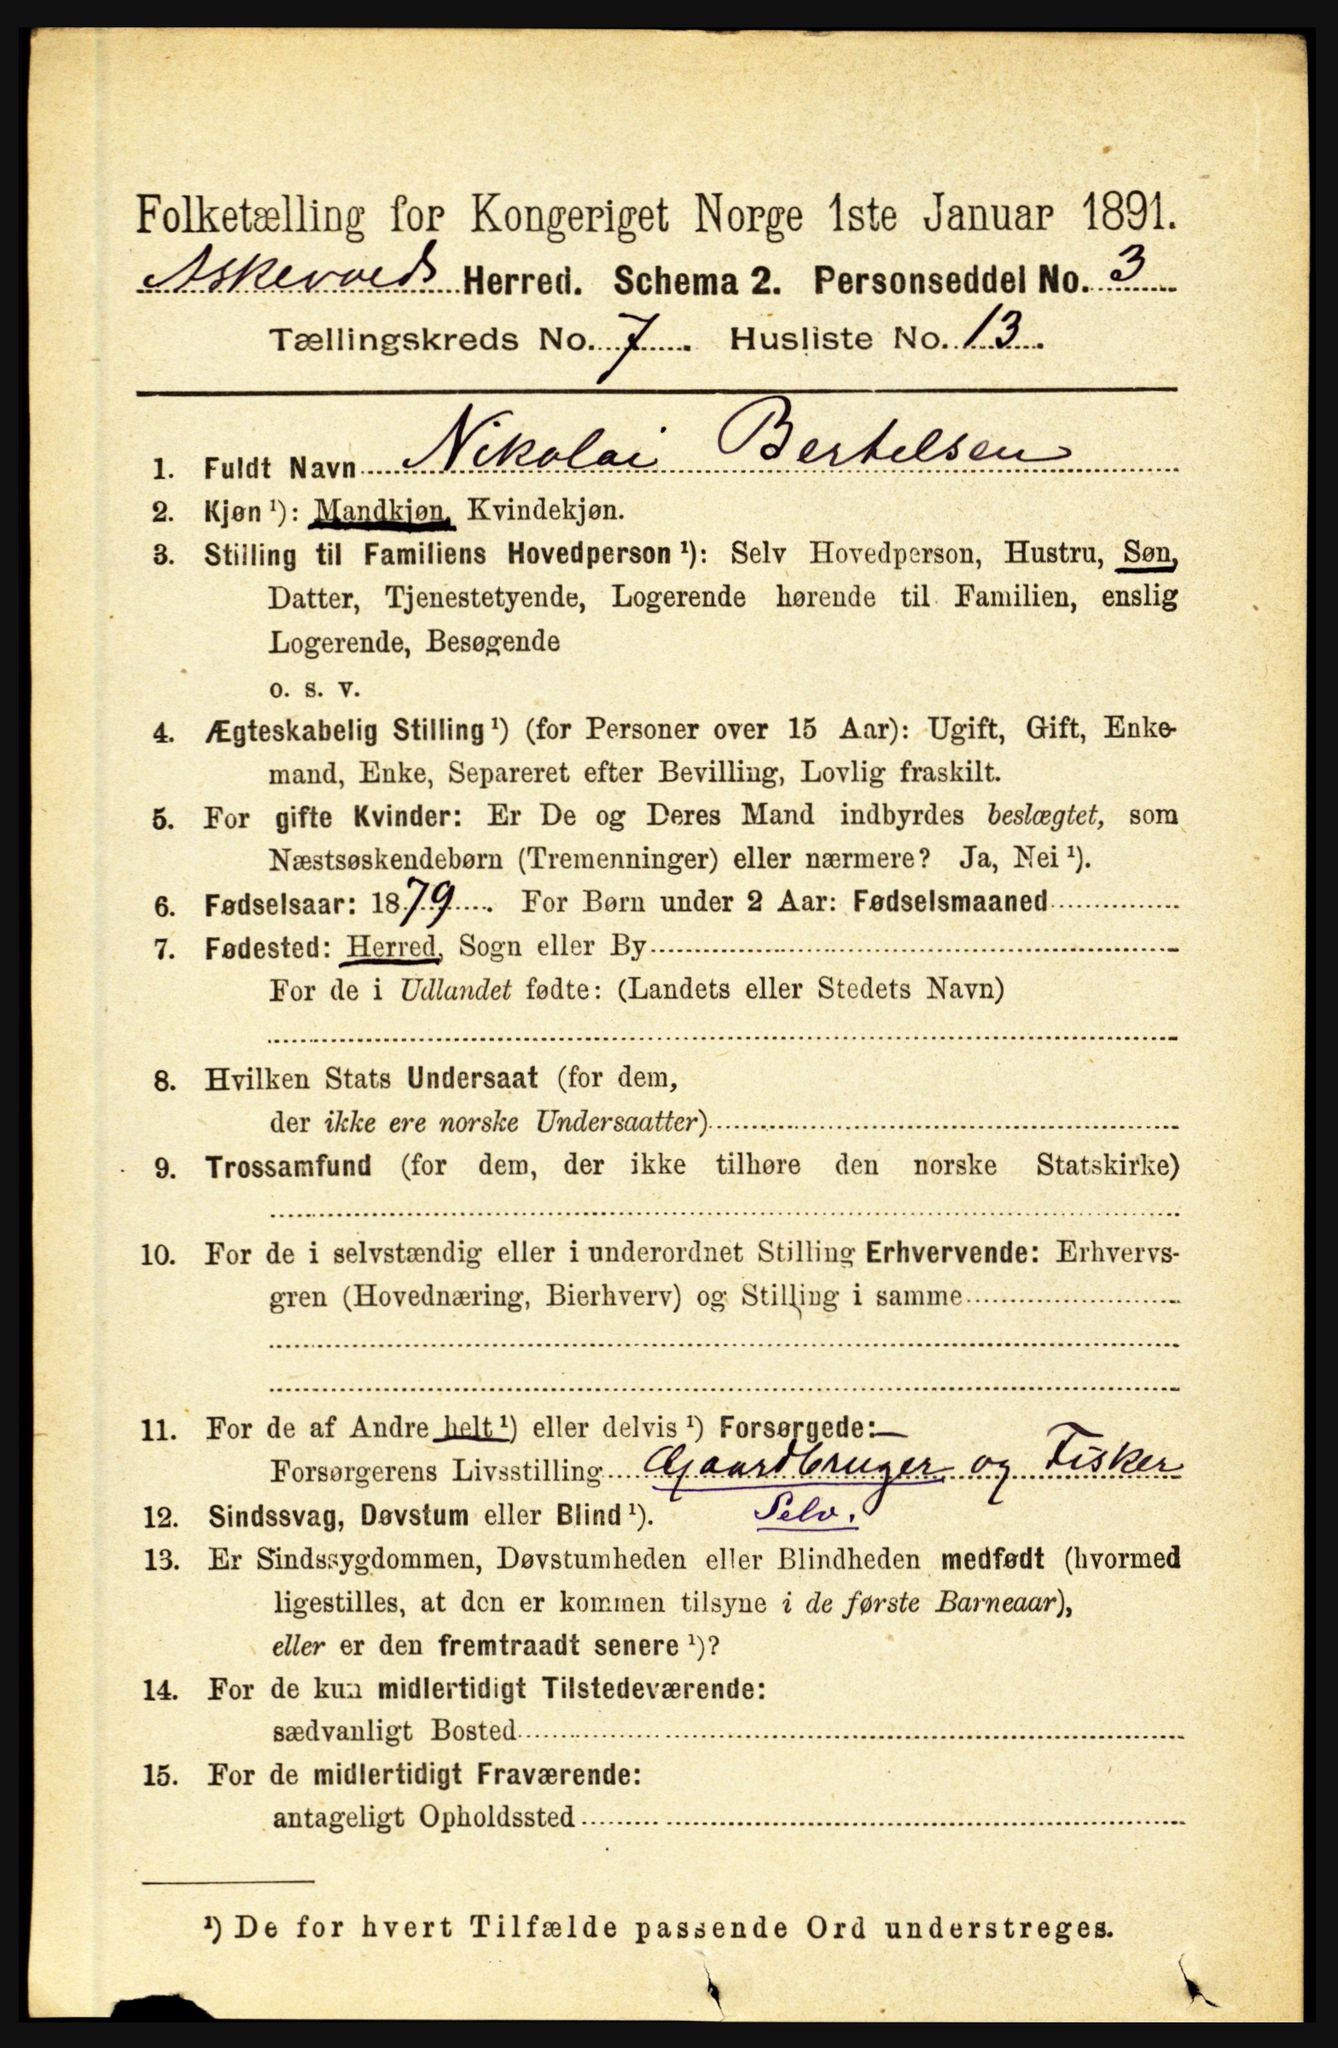 Folketælling for Kongeriget Norge 1ste Januar 1891.
Askevolds Herred. Schema 2. Personseddel No. 3
Tællingskreds No. 7. Husliste No. 13.
1. Fuldt Navn Nikolai Bertelsen
2. Kjøn ¹): Mandkjøn, Kvindekjøn.
3. Stilling til Familiens Hovedperson ¹): Selv Hovedperson, Hustru, Søn,
Datter, Tjenestetyende, Logerende hørende til Familien, enslig
Logerende, Besøgende
o. s. v.
4. Ægteskabelig Stilling ¹) (for Personer over 15 Aar): Ugift, Gift, Enke-
mand, Enke, Separeret efter Bevilling, Lovlig fraskilt.
5. For gifte Kvinder: Er De og Deres Mand indbyrdes beslægtet, som
Næstsøskendebørn (Tremenninger) eller nærmere? Ja, Nei ¹).
6. Fødselsaar: 1879. For Børn under 2 Aar: Fødselsmaaned
7. Fødested: Herred, Sogn eller By
For de i Udlandet fødte: (Landets eller Stedets Navn)
8. Hvilken Stats Undersaat (for dem,
der ikke ere norske Undersaatter)
9. Trossamfund (for dem, der ikke tilhøre den norske Statskirke)
10. For de i selvstændig eller i underordnet Stilling Erhvervende: Erhvervs-
gren (Hovednæring, Bierhverv) og Stilling i samme
11. For de af Andre helt ¹) eller delvis ¹) Forsørgede:
Forsørgerens Livsstilling Gaardbruger og Fisker
12. Sindssvag, Døvstum eller Blind ¹). Selv.
13. Er Sindssygdommen, Døvstumheden eller Blindheden medfødt (hvormed
ligestilles, at den er kommen tilsyne i de første Barneaar),
eller er den fremtraadt senere ¹)?
14. For de kun midlertidigt Tilstedeværende:
sædvanligt Bosted
15. For de midlertidigt Fraværende:
antageligt Opholdssted
¹) De for hvert Tilfælde passende Ord understreges.